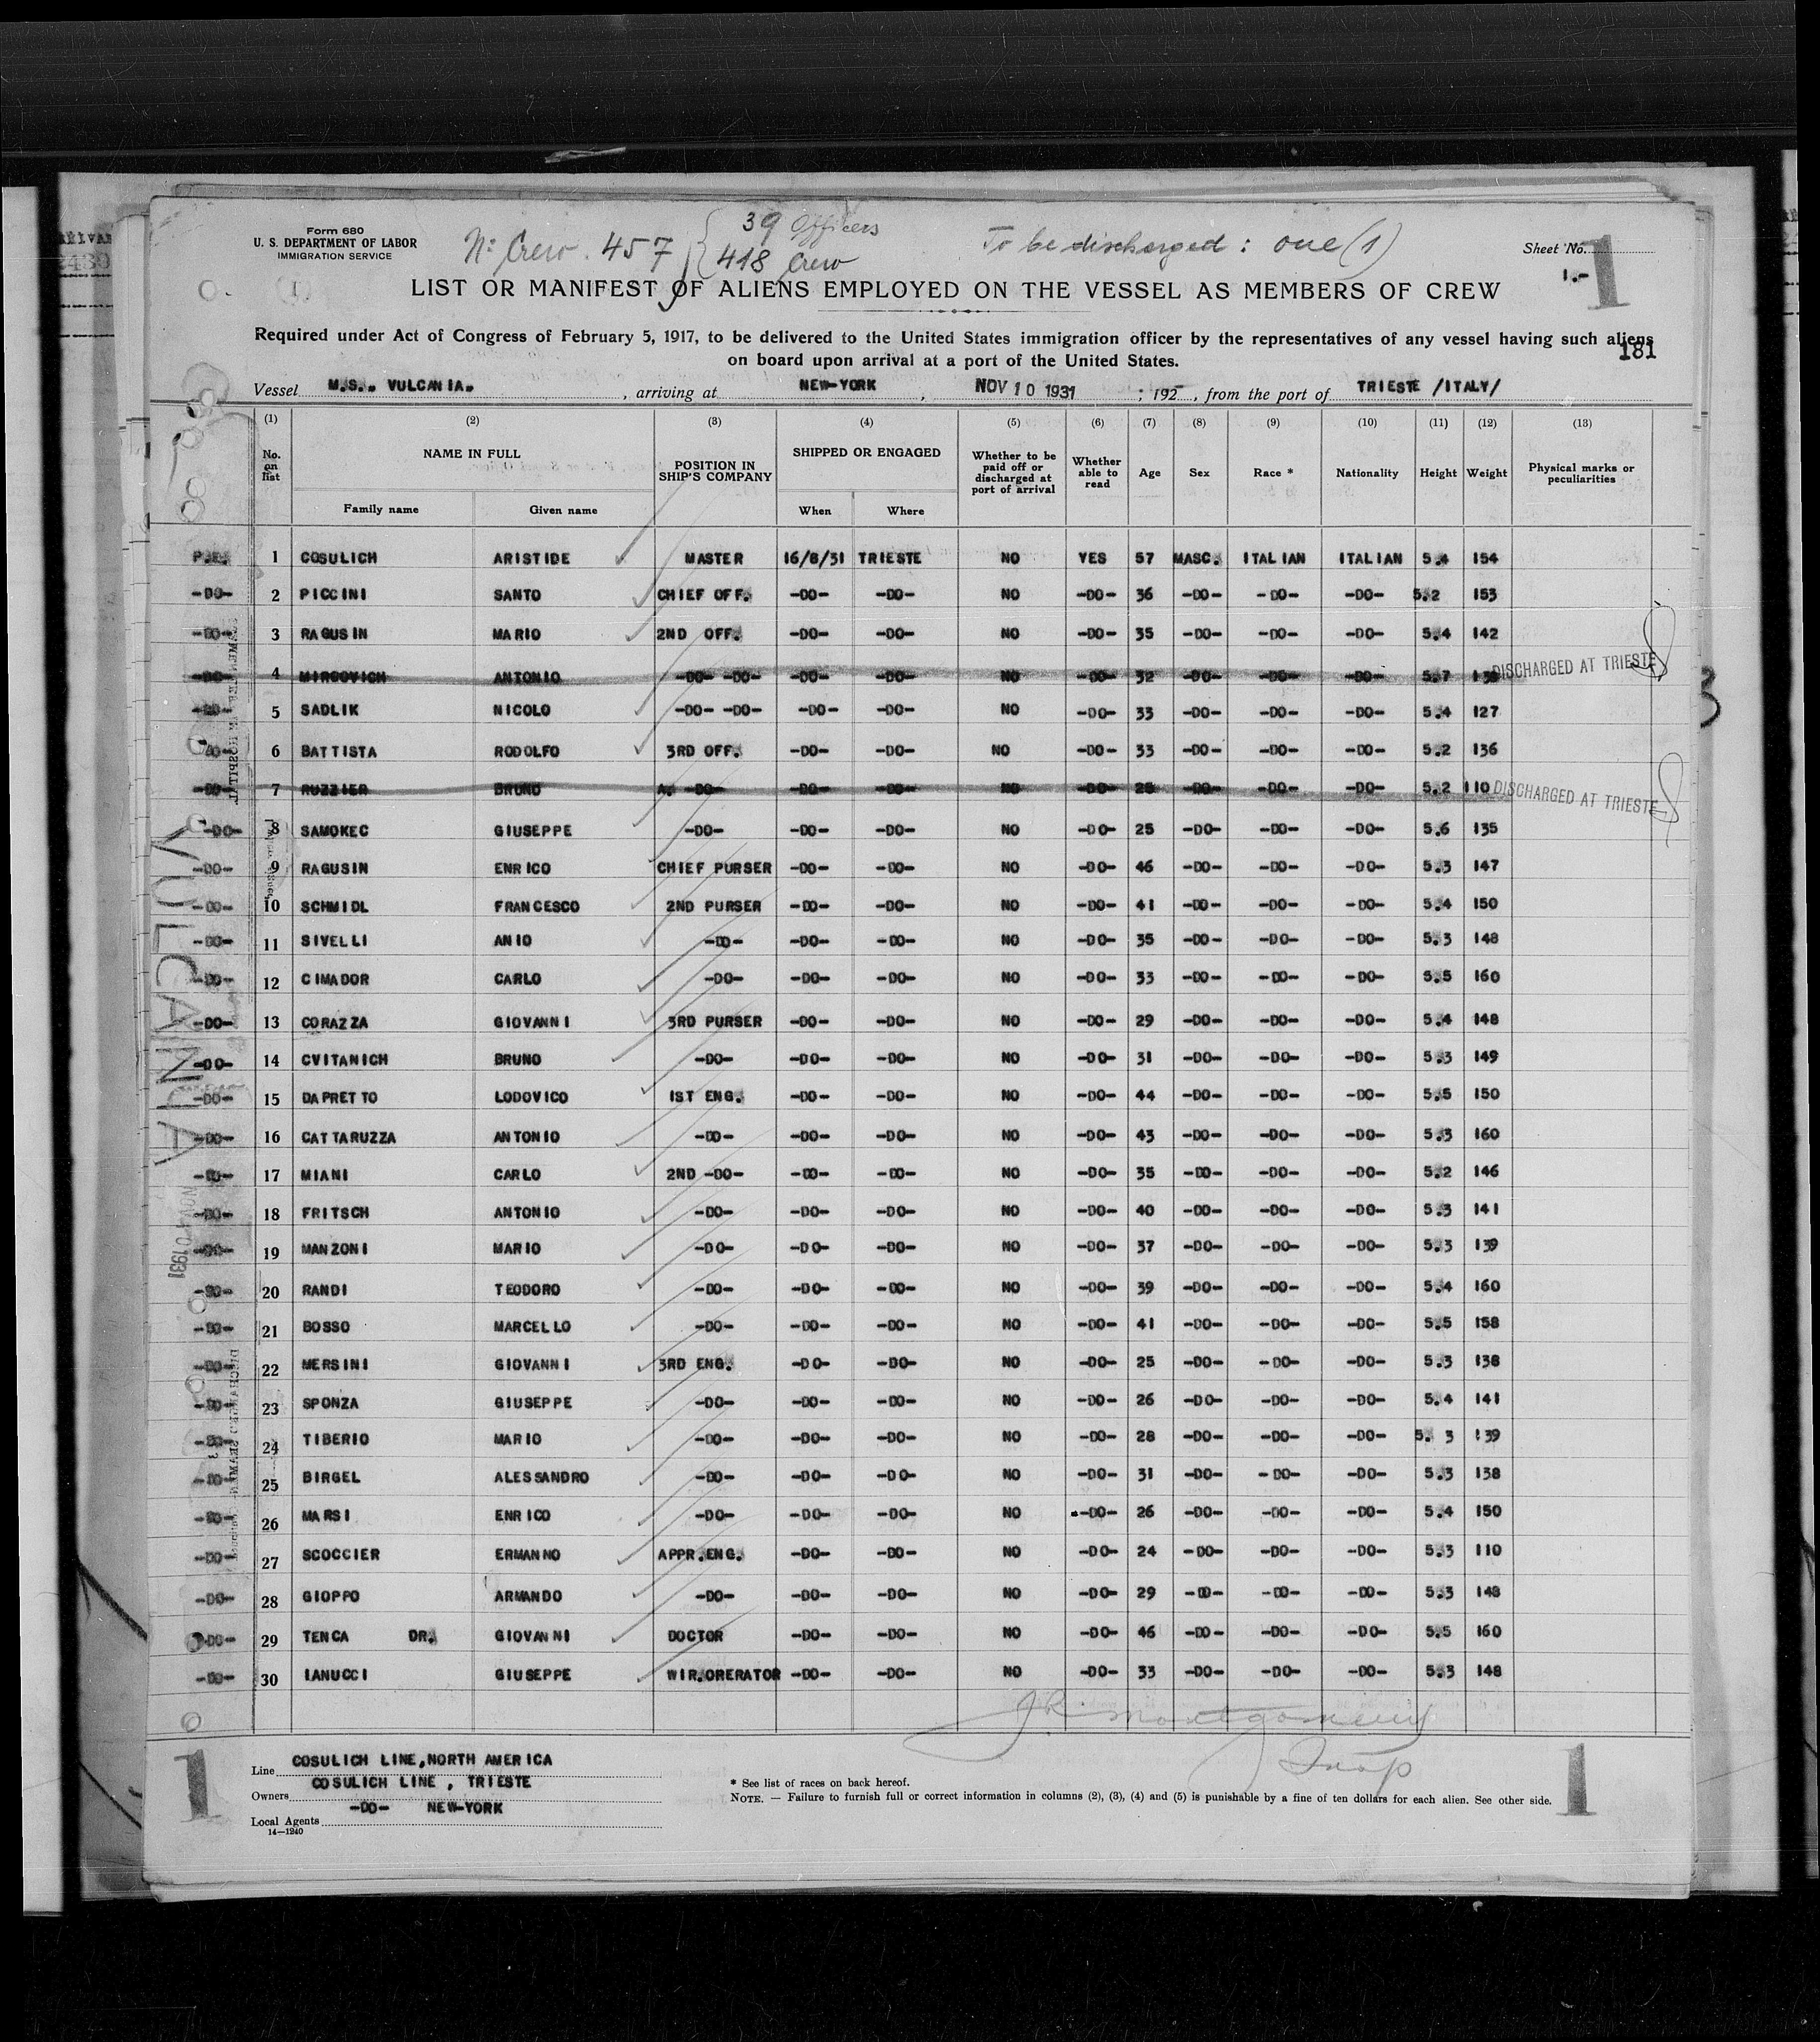 Form 680
U. S. DEPARTMENT OF LABOR
IMMIGRATION SERVICE
Nº Crew. 457 { 39 Officers
418 Crew
To be discharged: one (1)
Sheet No. 1
1.-
LIST OR MANIFEST OF ALIENS EMPLOYED ON THE VESSEL AS MEMBERS OF CREW
Required under Act of Congress of February 5, 1917, to be delivered to the United States immigration officer by the representatives of any vessel having such aliens
on board upon arrival at a port of the United States.
181
Vessel M.S. „ VULCANIA„ , arriving at NEW-YORK , NOV 10 1931 ; 192 , from the port of TRIESTE /ITALY/
(1) (2) (3) (4) (5) (6) (7) (8) (9) (10) (11) (12) (13)
No. on list NAME IN FULL Family name Given name POSITION IN SHIP'S COMPANY SHIPPED OR ENGAGED When Where Whether to be paid off or discharged at port of arrival Whether able to read Age Sex Race * Nationality Height Weight Physical marks or peculiarities
1 COSULICH ARISTIDE MASTER 16/8/31 TRIESTE NO YES 57 MASC. ITALIAN ITALIAN 5.4 154
-DO- 2 PICCINI SANTO CHIEF OFF. -DO- -DO- NO -DO- 36 -DO- -DO- -DO- 5.2 153
-DO- 3 RAGUSIN MARIO 2ND OFF. -DO- -DO- NO -DO- 35 -DO- -DO- -DO- 5.4 142
-DO- 4 MIRCOVICH ANTONIO -DO- -DO- -DO- -DO- NO -DO- 32 -DO- -DO- -DO- 5.7 DISCHARGED AT TRIESTE
-DO- 5 SADLIK NICOLO -DO- -DO- -DO- -DO- NO -DO- 33 -DO- -DO- -DO- 5.4 127
-DO- 6 BATTISTA RODOLFO 3RD OFF. -DO- -DO- NO -DO- 33 -DO- -DO- -DO- 5.2 136
-DO- 7 RUZZIER BRUNO A. -DO- -DO- -DO- NO -DO- 25 -DO- -DO- -DO- 5.2 110 DISCHARGED AT TRIESTE
-DO- 8 SAMOKEC GIUSEPPE -DO- -DO- -DO- NO -DO- 25 -DO- -DO- -DO- 5.6 135
-DO- 9 RAGUSIN ENRICO CHIEF PURSER -DO- -DO- NO -DO- 46 -DO- -DO- -DO- 5.3 147
-DO- 10 SCHMIDL FRANCESCO 2ND PURSER -DO- -DO- NO -DO- 41 -DO- -DO- -DO- 5.4 150
-DO- 11 SIVELLI ANIO -DO- -DO- -DO- NO -DO- 35 -DO- -DO- -DO- 5.3 148
-DO- 12 CIMADOR CARLO -DO- -DO- -DO- NO -DO- 33 -DO- -DO- -DO- 5.5 160
-DO- 13 CORAZZA GIOVANNI 3RD PURSER -DO- -DO- NO -DO- 29 -DO- -DO- -DO- 5.4 148
-DO- 14 CVITANICH BRUNO -DO- -DO- -DO- NO -DO- 31 -DO- -DO- -DO- 5.3 149
-DO- 15 DAPRETTO LODOVICO 1ST ENG. -DO- -DO- NO -DO- 44 -DO- -DO- -DO- 5.5 150
-DO- 16 CATTARUZZA ANTONIO -DO- -DO- -DO- NO -DO- 43 -DO- -DO- -DO- 5.3 160
-DO- 17 MIANI CARLO 2ND -DO- -DO- -DO- NO -DO- 35 -DO- -DO- -DO- 5.2 146
-DO- 18 FRITSCH ANTONIO -DO- -DO- -DO- NO -DO- 40 -DO- -DO- -DO- 5.3 141
-DO- 19 MANZONI MARIO -DO- -DO- -DO- NO -DO- 37 -DO- -DO- -DO- 5.3 139
-DO- 20 RANDI TEODORO -DO- -DO- -DO- NO -DO- 39 -DO- -DO- -DO- 5.4 160
-DO- 21 BOSSO MARCELLO -DO- -DO- -DO- NO -DO- 41 -DO- -DO- -DO- 5.5 158
-DO- 22 MERSINI GIOVANNI 3RD ENG. -DO- -DO- NO -DO- 25 -DO- -DO- -DO- 5.3 138
-DO- 23 SPONZA GIUSEPPE -DO- -DO- -DO- NO -DO- 26 -DO- -DO- -DO- 5.4 141
-DO- 24 TIBERIO MARIO -DO- -DO- -DO- NO -DO- 28 -DO- -DO- -DO- 5.3 139
-DO- 25 BIRGEL ALESSANDRO -DO- -DO- -DO- NO -DO- 31 -DO- -DO- -DO- 5.3 138
-DO- 26 MARSI ENRICO -DO- -DO- -DO- NO -DO- 26 -DO- -DO- -DO- 5.4 150
-DO- 27 SCOCCIER ERMANNO APPR.ENG. -DO- -DO- NO -DO- 24 -DO- -DO- -DO- 5.3 110
-DO- 28 GIOPPO ARMANDO -DO- -DO- -DO- NO -DO- 29 -DO- -DO- -DO- 5.3 148
-DO- 29 TENCA DR. GIOVANNI DOCTOR -DO- -DO- NO -DO- 46 -DO- -DO- -DO- 5.5 160
-DO- 30 IANUCCI GIUSEPPE WIR.ORERATOR -DO- -DO- NO -DO- 33 -DO- -DO- -DO- 5.3 148
VULCANIA
NOV 10 1931
J R Montgomery
Insp
1
Line COSULICH LINE,NORTH AMERICA
Owners COSULICH LINE , TRIESTE
Local Agents -DO- NEW-YORK
14—1240
* See list of races on back hereof.
NOTE. — Failure to furnish full or correct information in columns (2), (3), (4) and (5) is punishable by a fine of ten dollars for each alien. See other side.
1